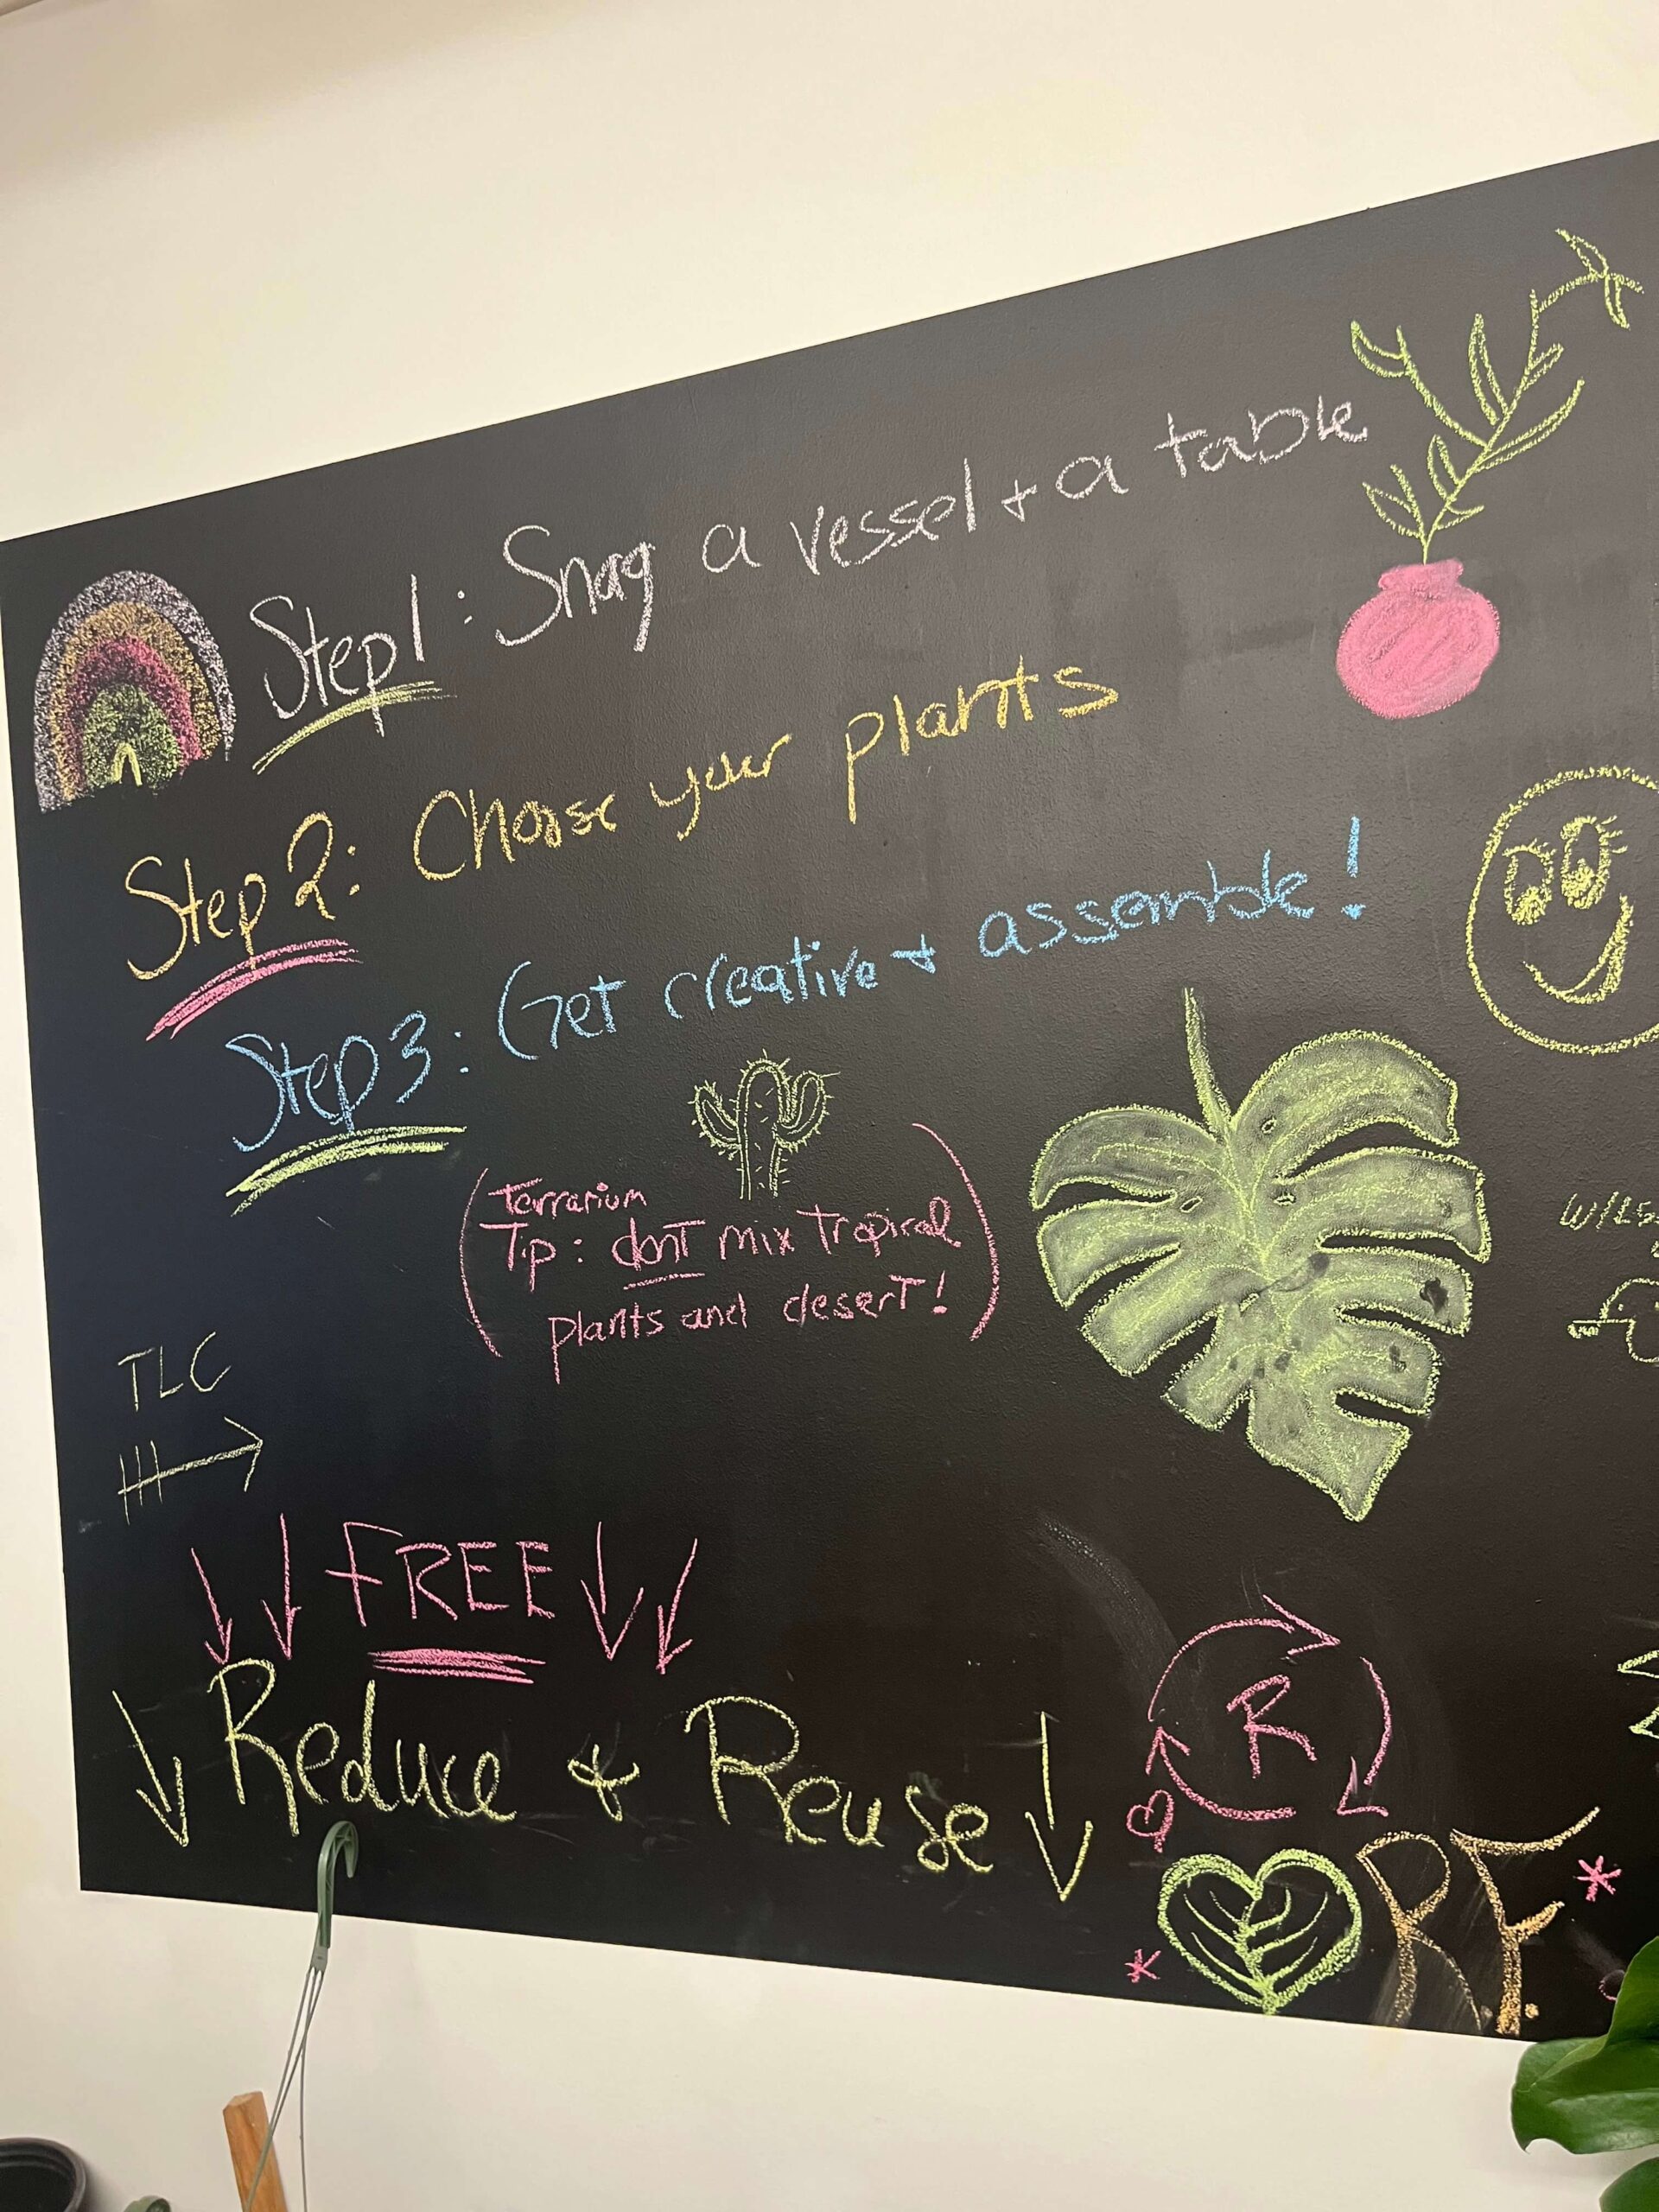 Step 1: Snag a vessel + a table
Step 2: Choose your plants
Step 3: Get creative + assemble!
(Terrarium
Tip: dont mix tropical
plants and desert!)
TLC
FREE
Reduce + Reuse
R
R.F.